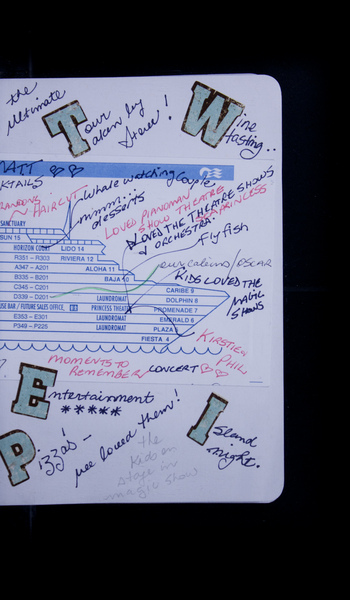 the
ultimate
Tour
taken by
Steve!
Wine
tasting..
MATT
KTAILS
Whale watching Couple
HAIRCUT
mmm...
desserts
LOVED PIANOMAN
SHOW THEATRE
PRINCESS
LOVED THE THEATRE SHOWS
& ORCHESTRA.
Fly fish
SANCTUARY
SUN 15
HORIZON COURT LIDO 14
R351 – R303 RIVIERA 12
A347 – A201 ALOHA 11
B335 – B201 BAJA 10
C345 – C201 CARIBE 9
D339 – D201 LAUNDROMAT DOLPHIN 8
USE BAR / FUTURE SALES OFFICE, PRINCESS THEATRE PROMENADE 7
E353 – E301 LAUNDROMAT EMERALD 6
P349 – P225 LAUNDROMAT PLAZA 5
FIESTA 4
our cabins/OSCAR
KIDS LOVED THE
MAGIC
SHOWS
KIRSTEN
PHIL
MOMENTS TO
REMEMBER CONCERT
Entertainment
*****
Pizzas! –
we loved them!
the
kids on
stage in
magic show
Island
night.